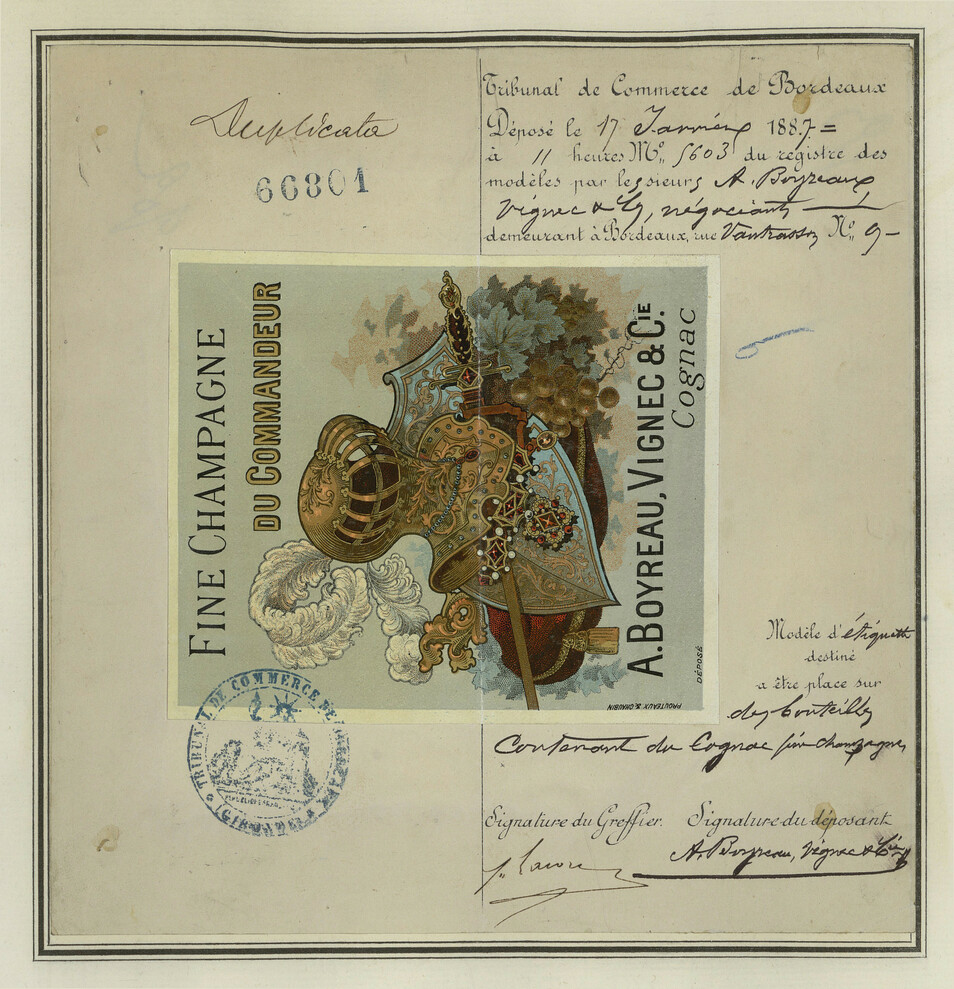 Duplicata
66801
Tribunal de Commerce de Bordeaux
Déposé le 17 Janvier 1887=
à 11 heures No. 5603 du registre des
modèles par les sieurs A. Boyreau
Vignec & Cie, négociants
demeurant à Bordeaux, rue No. 9
FINE CHAMPAGNE
DU COMMANDEUR
A. BOYREAU, VIGNEC & C.IE
Cognac
DÉPOSÉ
PROUTEAUX & CHAUBIN
Modèle d'étiquette
destiné
a être place sur
des bouteilles
Contenant du Cognac fine champagne
TRIBUNAL DE COMMERCE DE
(GIRONDE)
Signature du Greffier. Signature du déposant
A. Boyreau, Vignec & Cie